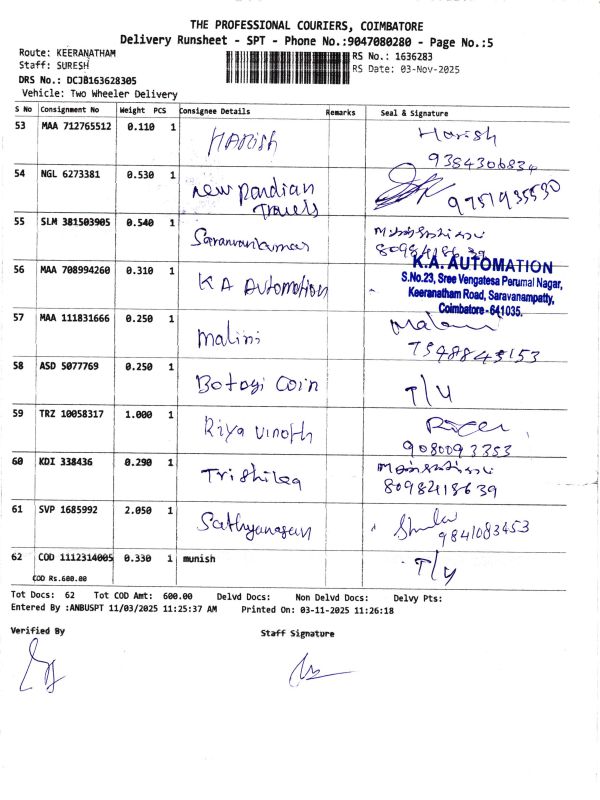 THE PROFESSIONAL COURIERS, COIMBATORE
Delivery Runsheet - SPT - Phone No.:9047080280 - Page No.:5
Route: KEERANATHAM
Staff: SURESH
DRS No.: DCJB163628305
Vehicle: Two Wheeler Delivery
RS No.: 1636283
RS Date: 03-Nov-2025
S No Consignment No Weight PCS Consignee Details Remarks Seal & Signature
53 MAA 712765512 0.110 1 HARISH Harish
9384306834
54 NGL 6273381 0.530 1 new pandian
Travels 9751935530
55 SLM 381503905 0.540 1 Saravanakumar
8098418639
56 MAA 708994260 0.310 1 K A Automation
K.A. AUTOMATION
S.No.23, Sree Vengatesa Perumal Nagar,
Keeranatham Road, Saravanampatty,
Coimbatore - 641035.
57 MAA 111831666 0.250 1 Malini
58 ASD 5077769 0.250 1 Botogi Coin T/4
59 TRZ 10058317 1.000 1 Riya vinoth
9080093353
60 KDI 338436 0.290 1
8098418639
61 SVP 1685992 2.050 1
9841083453
62 COD 1112314005 0.330 1 munish T/4
COD Rs.600.00
Tot Docs: 62 Tot COD Amt: 600.00 Delvd Docs: Non Delvd Docs: Delvy Pts:
Entered By :ANBUSPT 11/03/2025 11:25:37 AM Printed On: 03-11-2025 11:26:18
Verified By Staff Signature